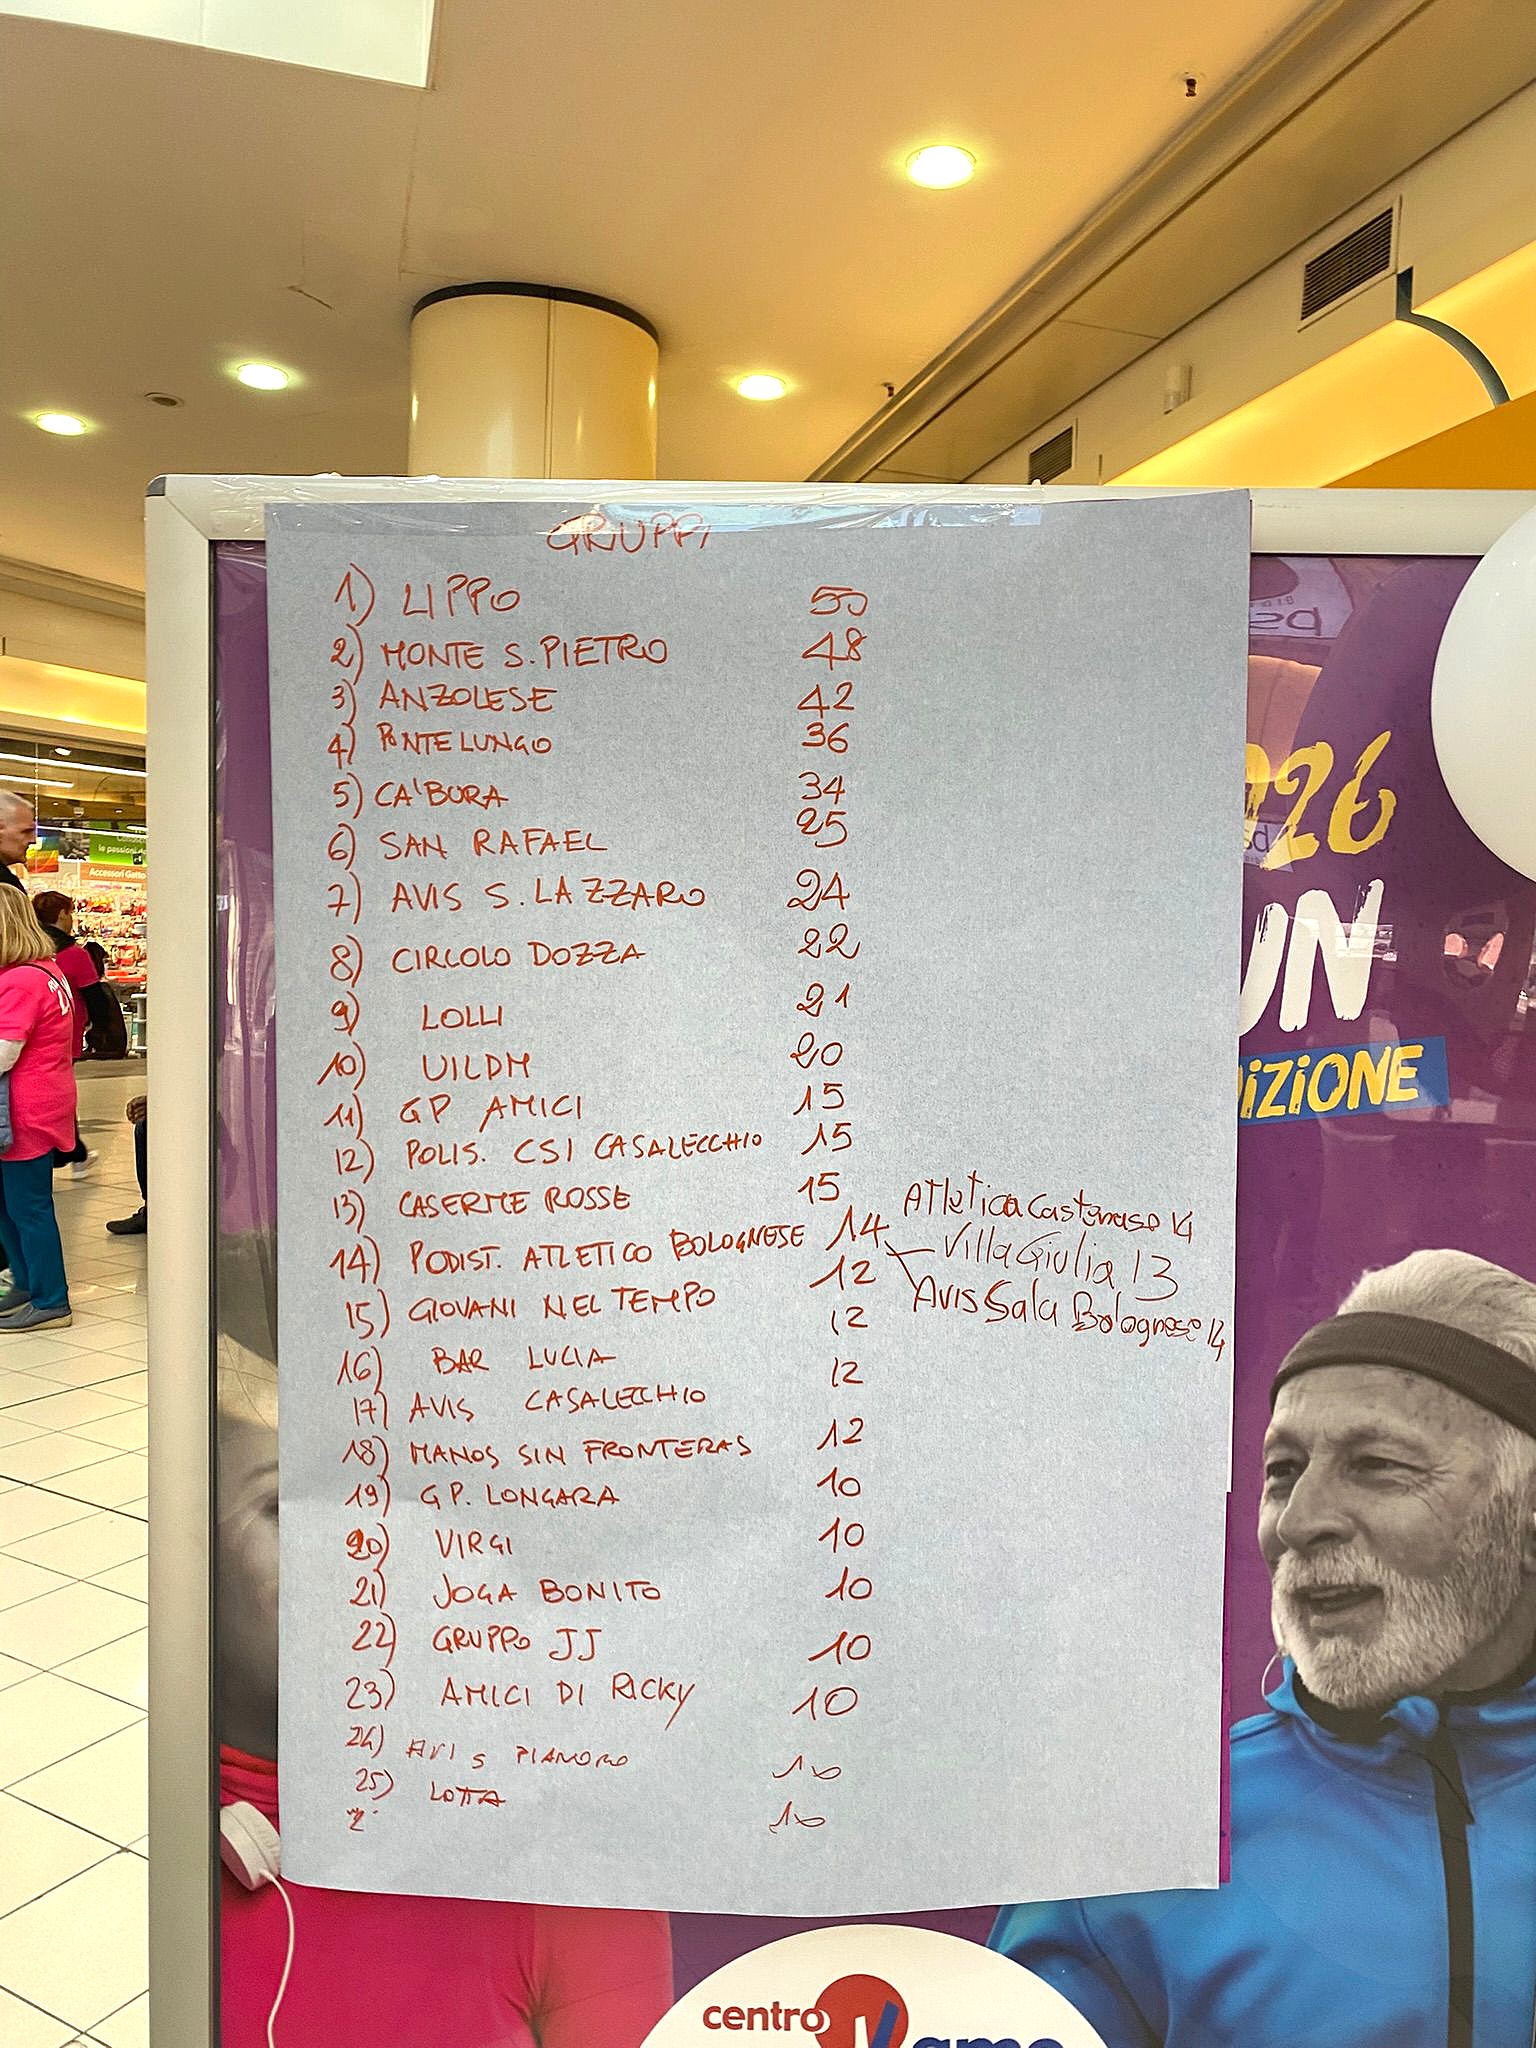 GRUPPI
1) LIPPO 50
2) MONTE S. PIETRO 48
3) ANZOLESE 42
4) PONTELUNGO 36
5) CA'BURA 34
6) SAN RAFAEL 25
7) AVIS S. LAZZARO 24
8) CIRCOLO DOZZA 22
9) LOLLI 21
10) UILDM 20
11) GP AMICI 15
12) POLIS. CSI CASALECCHIO 15
13) CASERME ROSSE 15
14) PODIST. ATLETICO BOLOGNESE 14
Atletica Castenaso 14
Villa Giulia 13
Avis Sala Bolognese 14
15) GIOVANI NEL TEMPO 12
16) BAR LUCIA 12
17) AVIS CASALECCHIO 12
18) MANOS SIN FRONTERAS 12
19) GP. LONGARA 10
20) VIRGI 10
21) JOGA BONITO 10
22) GRUPPO JJ 10
23) AMICI DI RICKY 10
24) AVIS PIANORO 10
25) LOTTA 10
026
UN
DIZIONE
centro
Accessori Gatto
le passioni